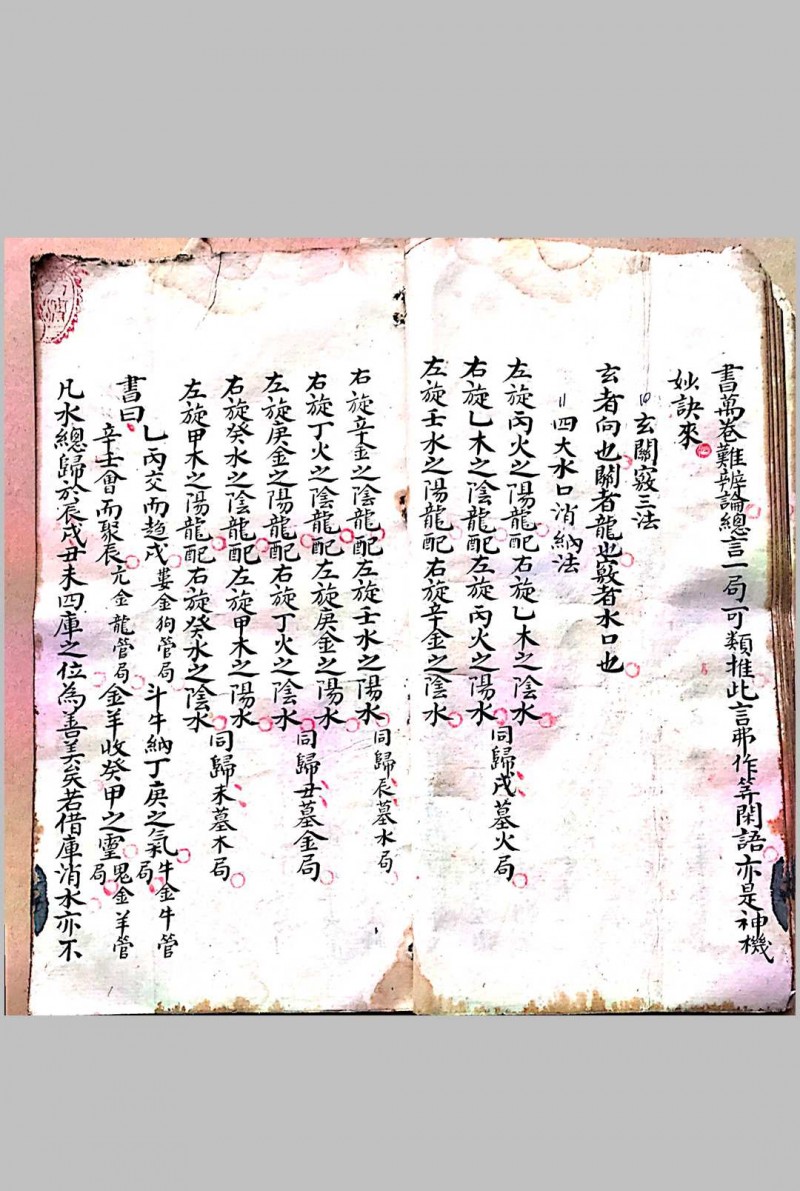 書萬卷難辨論總言一局可類推此言弗作等閑語亦是神機
妙訣來
玄關竅三法
玄者向也關者龍也竅者水口也
四大水口消納法
左旋丙火之陽龍配右旋乙木之陰水
右旋乙木之陰龍配左旋丙火之陽水 同歸戌墓火局
左旋壬水之陽龍配右旋辛金之陰水
右旋辛金之陰龍配左旋壬水之陽水 同歸辰墓水局
右旋丁火之陰龍配左旋庚金之陽水
左旋庚金之陽龍配右旋丁火之陰水 同歸丑墓金局
右旋癸水之陰龍配左旋甲木之陽水
左旋甲木之陽龍配右旋癸水之陰水 同歸未墓木局
乙丙交而趨戌婁金狗管局斗牛納丁庚之氣牛金牛管局
書曰
辛壬會而聚辰亢金龍管局金羊收癸甲之靈鬼金羊管局
凡水總歸於辰戌丑未四庫之位為善美矣若借庫消水亦不